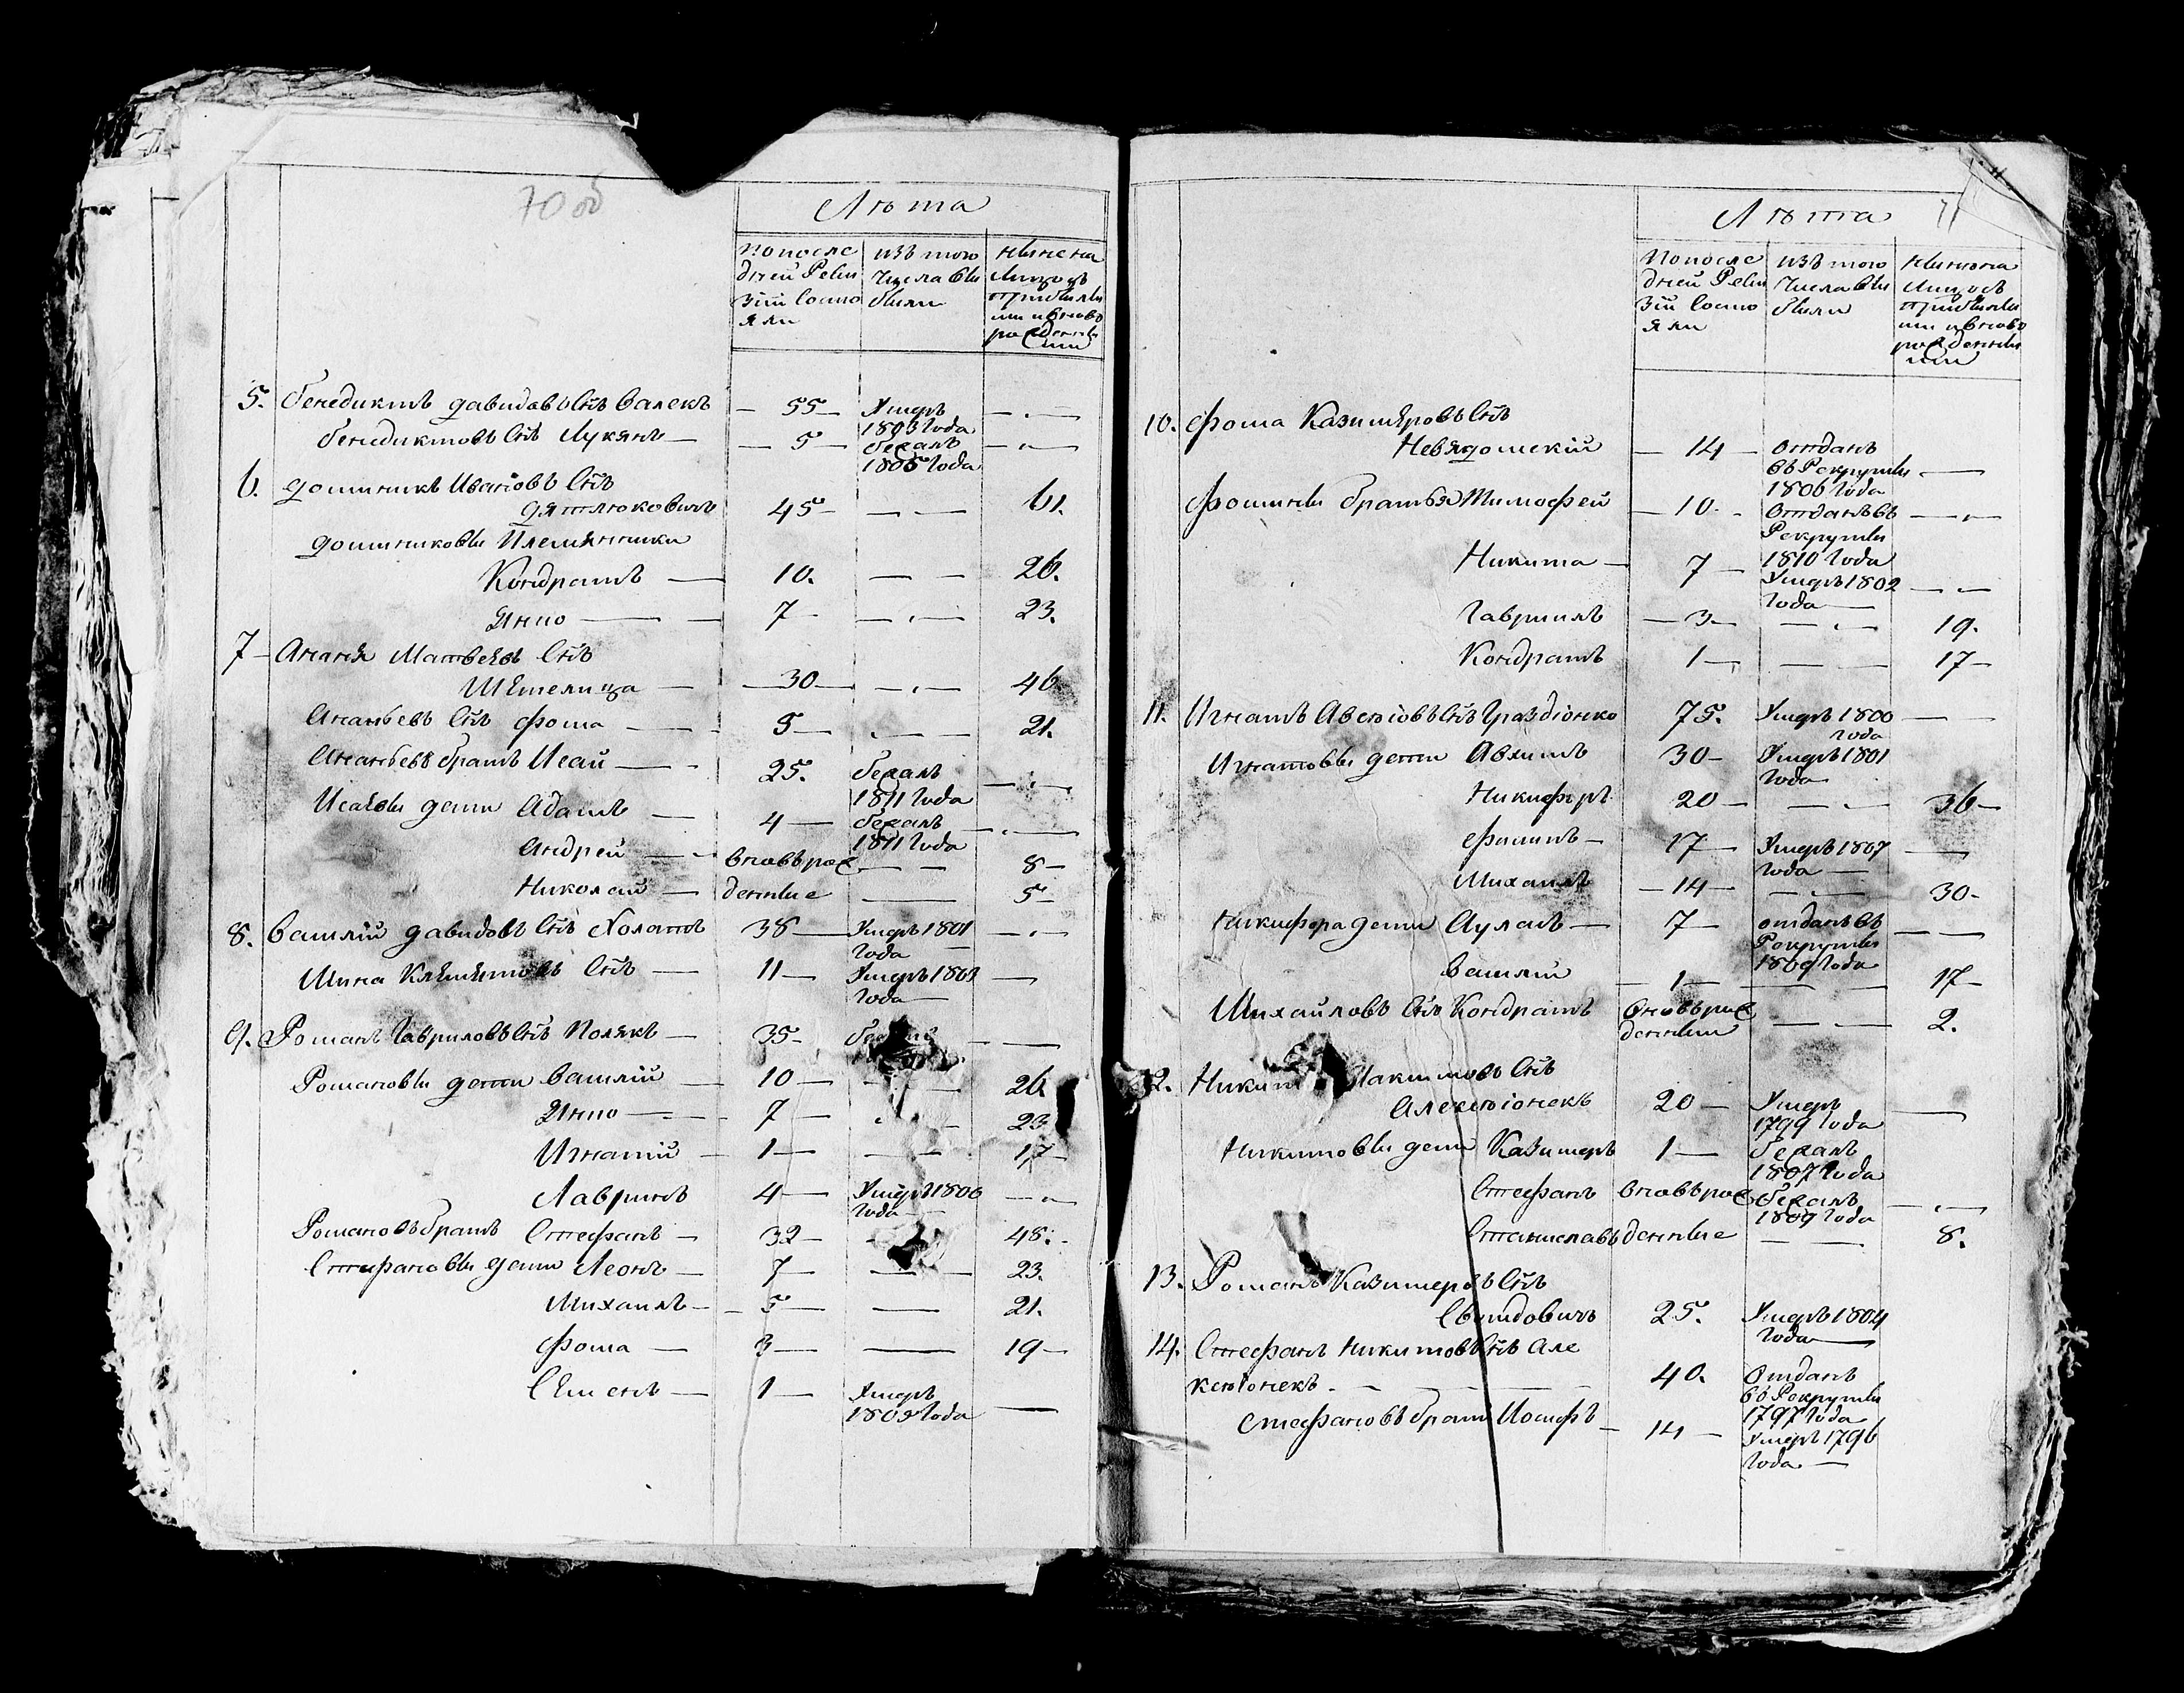 70 об
Лѣта
по после
дней Реви
зіи Состо
яли
изъ того
числа вы
были
нынѣ на
лицо съ
прибылы
ми и вново
рожденны
ми
5. Бенедиктъ Давидовъ Снъ Валекъ — 55 — Умеръ 1803 года — . —
Бенедиктовъ Снъ Лукянъ — 5 — бежалъ 1805 года — . —
6. Доминикъ Ивановъ Снъ
Дятлюковичъ 45 — — — 61.
Доминиковы Племянники
Кондратъ — 10. — — 26.
Янно — 7 — . — 23.
7 — Ананя Матвеѣвъ Снъ
Шѣтелица — 30 — . — 46
Ананьевъ Снъ Фома — 5 — . — 21.
Ананьевъ братъ Исай — 25. бежалъ 1811 года — . —
Исаѣвы дети Адамъ — 4 — бежалъ 1811 года — . —
Андрей — вновь рож — — 8 —
Николай — денные — 5 —
8. Василій Давидовъ Снъ Холатъ 38 — Умеръ 1801 года — . —
Мина Клѣмѣтовъ Снъ — 11 — Умеръ 1802 года —
9. Романъ Гавриловъ Снъ Полякъ — 35 — — —
Романовы дети Василій — 10 — — 26.
Янно — 7 — . — 23
Игнатій — 1 — — — 17 —
Лавринъ 4 — Умеръ 1806 года — . —
Романовъ братъ Стефанъ — 32 — — 48. —
Стефановы дети Леонъ — 7 — — 23.
Михаилъ — 5 — — 21.
Фома — 3 — — 19 —
Сѣменъ — 1 — Умеръ 1802 года —
71
Лѣта
по после
дней Реви
зіи Состо
яли
изъ того
числа вы
были
нынѣ на
лицо съ
прибылы
ми и вново
рожденны
ми
10. Фома Казимѣровъ Снъ
Невядомскій — 14 — отданъ въ Рекруты 1806 года —
Фомины братья Тимофей — 10. — отданъ въ Рекруты 1810 года — . —
Никита — 7 — Умеръ 1802 года — . —
Гавриилъ — 3 — — . — 19.
Кондратъ 1 — — — 17 —
11. Игнатъ Авсюовъ Снъ 75. Умеръ 1800 года — —
Игнатовы дети Авхимъ 30 — Умеръ 1801 года
Никифоръ 20 — — . — 36 —
Филипъ — 17 — Умеръ 1807 года —
Михаилъ — 14 — — . — 30 —
Никифора дети — 7 — отданъ въ Рекруты 1809 года — —
Василій — 1 — — — 17 —
Михайловъ Снъ Кондратъ вновь рож денный — — 2.
12. Никит Макимовъ Снъ
Алексюіонекъ 20 — Умеръ 1799 года —
Никитовы дети Казимеръ 1 — бежалъ 1807 года
Стефанъ вновь рож бежалъ 1809 года — . —
Станиславъ денные — — 8.
13. Романъ Казимеровъ Снъ
Свитдовичъ 25. Умеръ 1804 года —
14. Стефанъ Никитовъ Снъ Але
ксюіонекъ — — 40. Отданъ въ Рекруты 1797 года
Стефановъ братъ Иосифъ — 14 — Умеръ 1796 года —